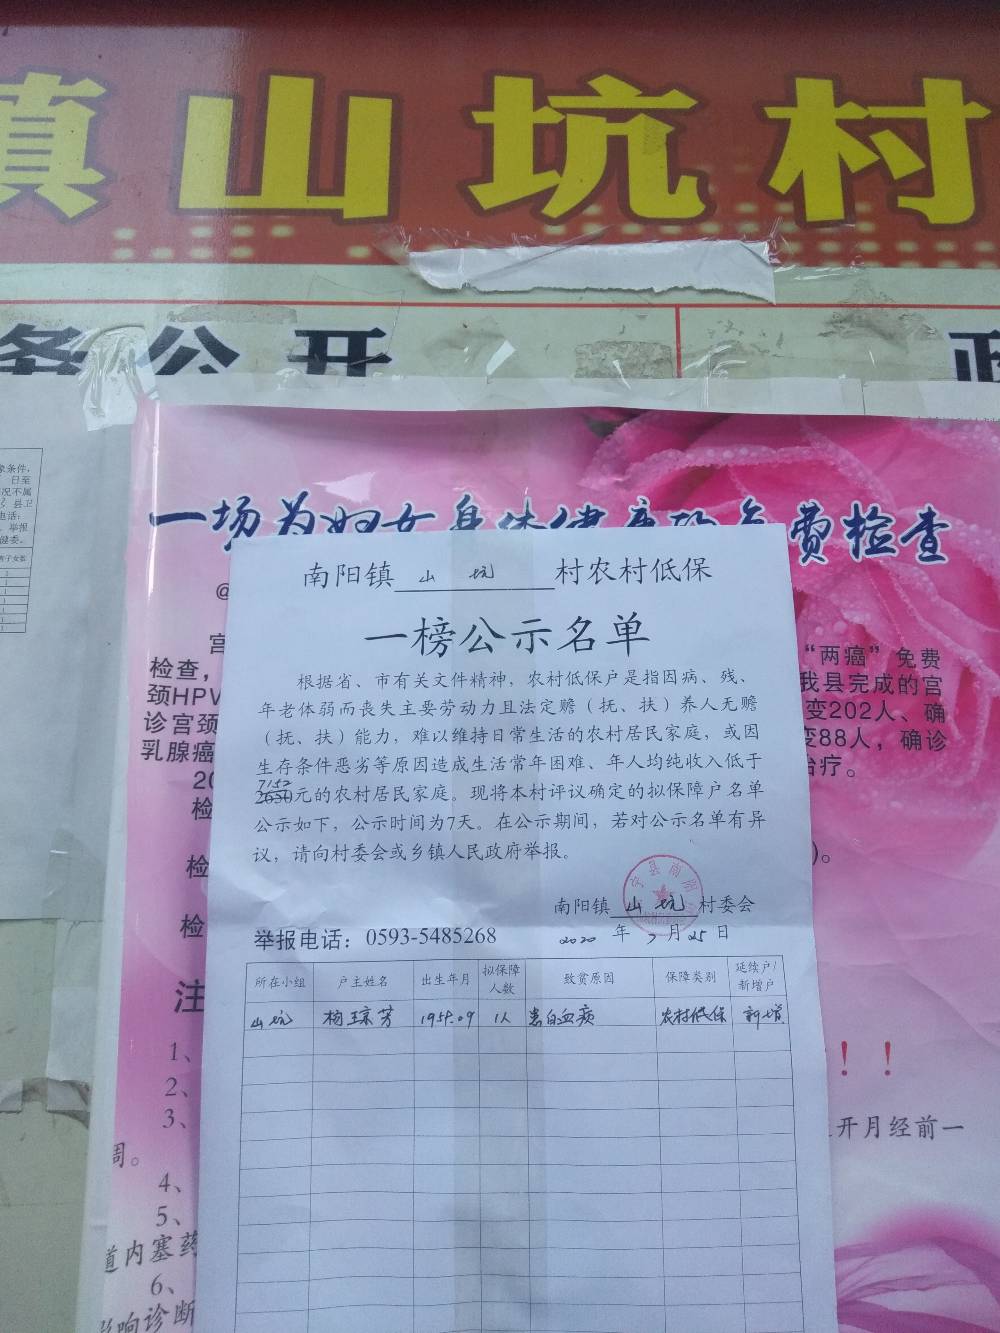 镇山坑村
务公开
一场为妇女身体健康的免费检查
象条件，
日至
况不属
县卫
电话：
举报
健委。
南阳镇山坑村农村低保
一榜公示名单
根据省、市有关文件精神，农村低保户是指因病、残、
年老体弱而丧失主要劳动力且法定赡（抚、扶）养人无赡
（抚、扶）能力，难以维持日常生活的农村居民家庭，或因
生存条件恶劣等原因造成生活常年困难、年人均纯收入低于
7152
2650元的农村居民家庭。现将本村评议确定的拟保障户名单
公示如下，公示时间为7天。在公示期间，若对公示名单有异
议，请向村委会或乡镇人民政府举报。
南阳镇山坑村委会
举报电话：0593-5485268
2020年7月25日
所在小组 户主姓名 出生年月 拟保障人数 致贫原因 保障类别 延续户/新增户
山坑 1人 患白血病 农村低保 新增
宫
检查，
颈HPV
诊宫颈
乳腺癌
20
检
检
检
注
1、
2、
3、
周。
4、
5、
道内塞药
6、
影响诊断
“两癌”免费
我县完成的宫
变202人、确
变88人，确诊
治疗。
）。
！！
开月经前一